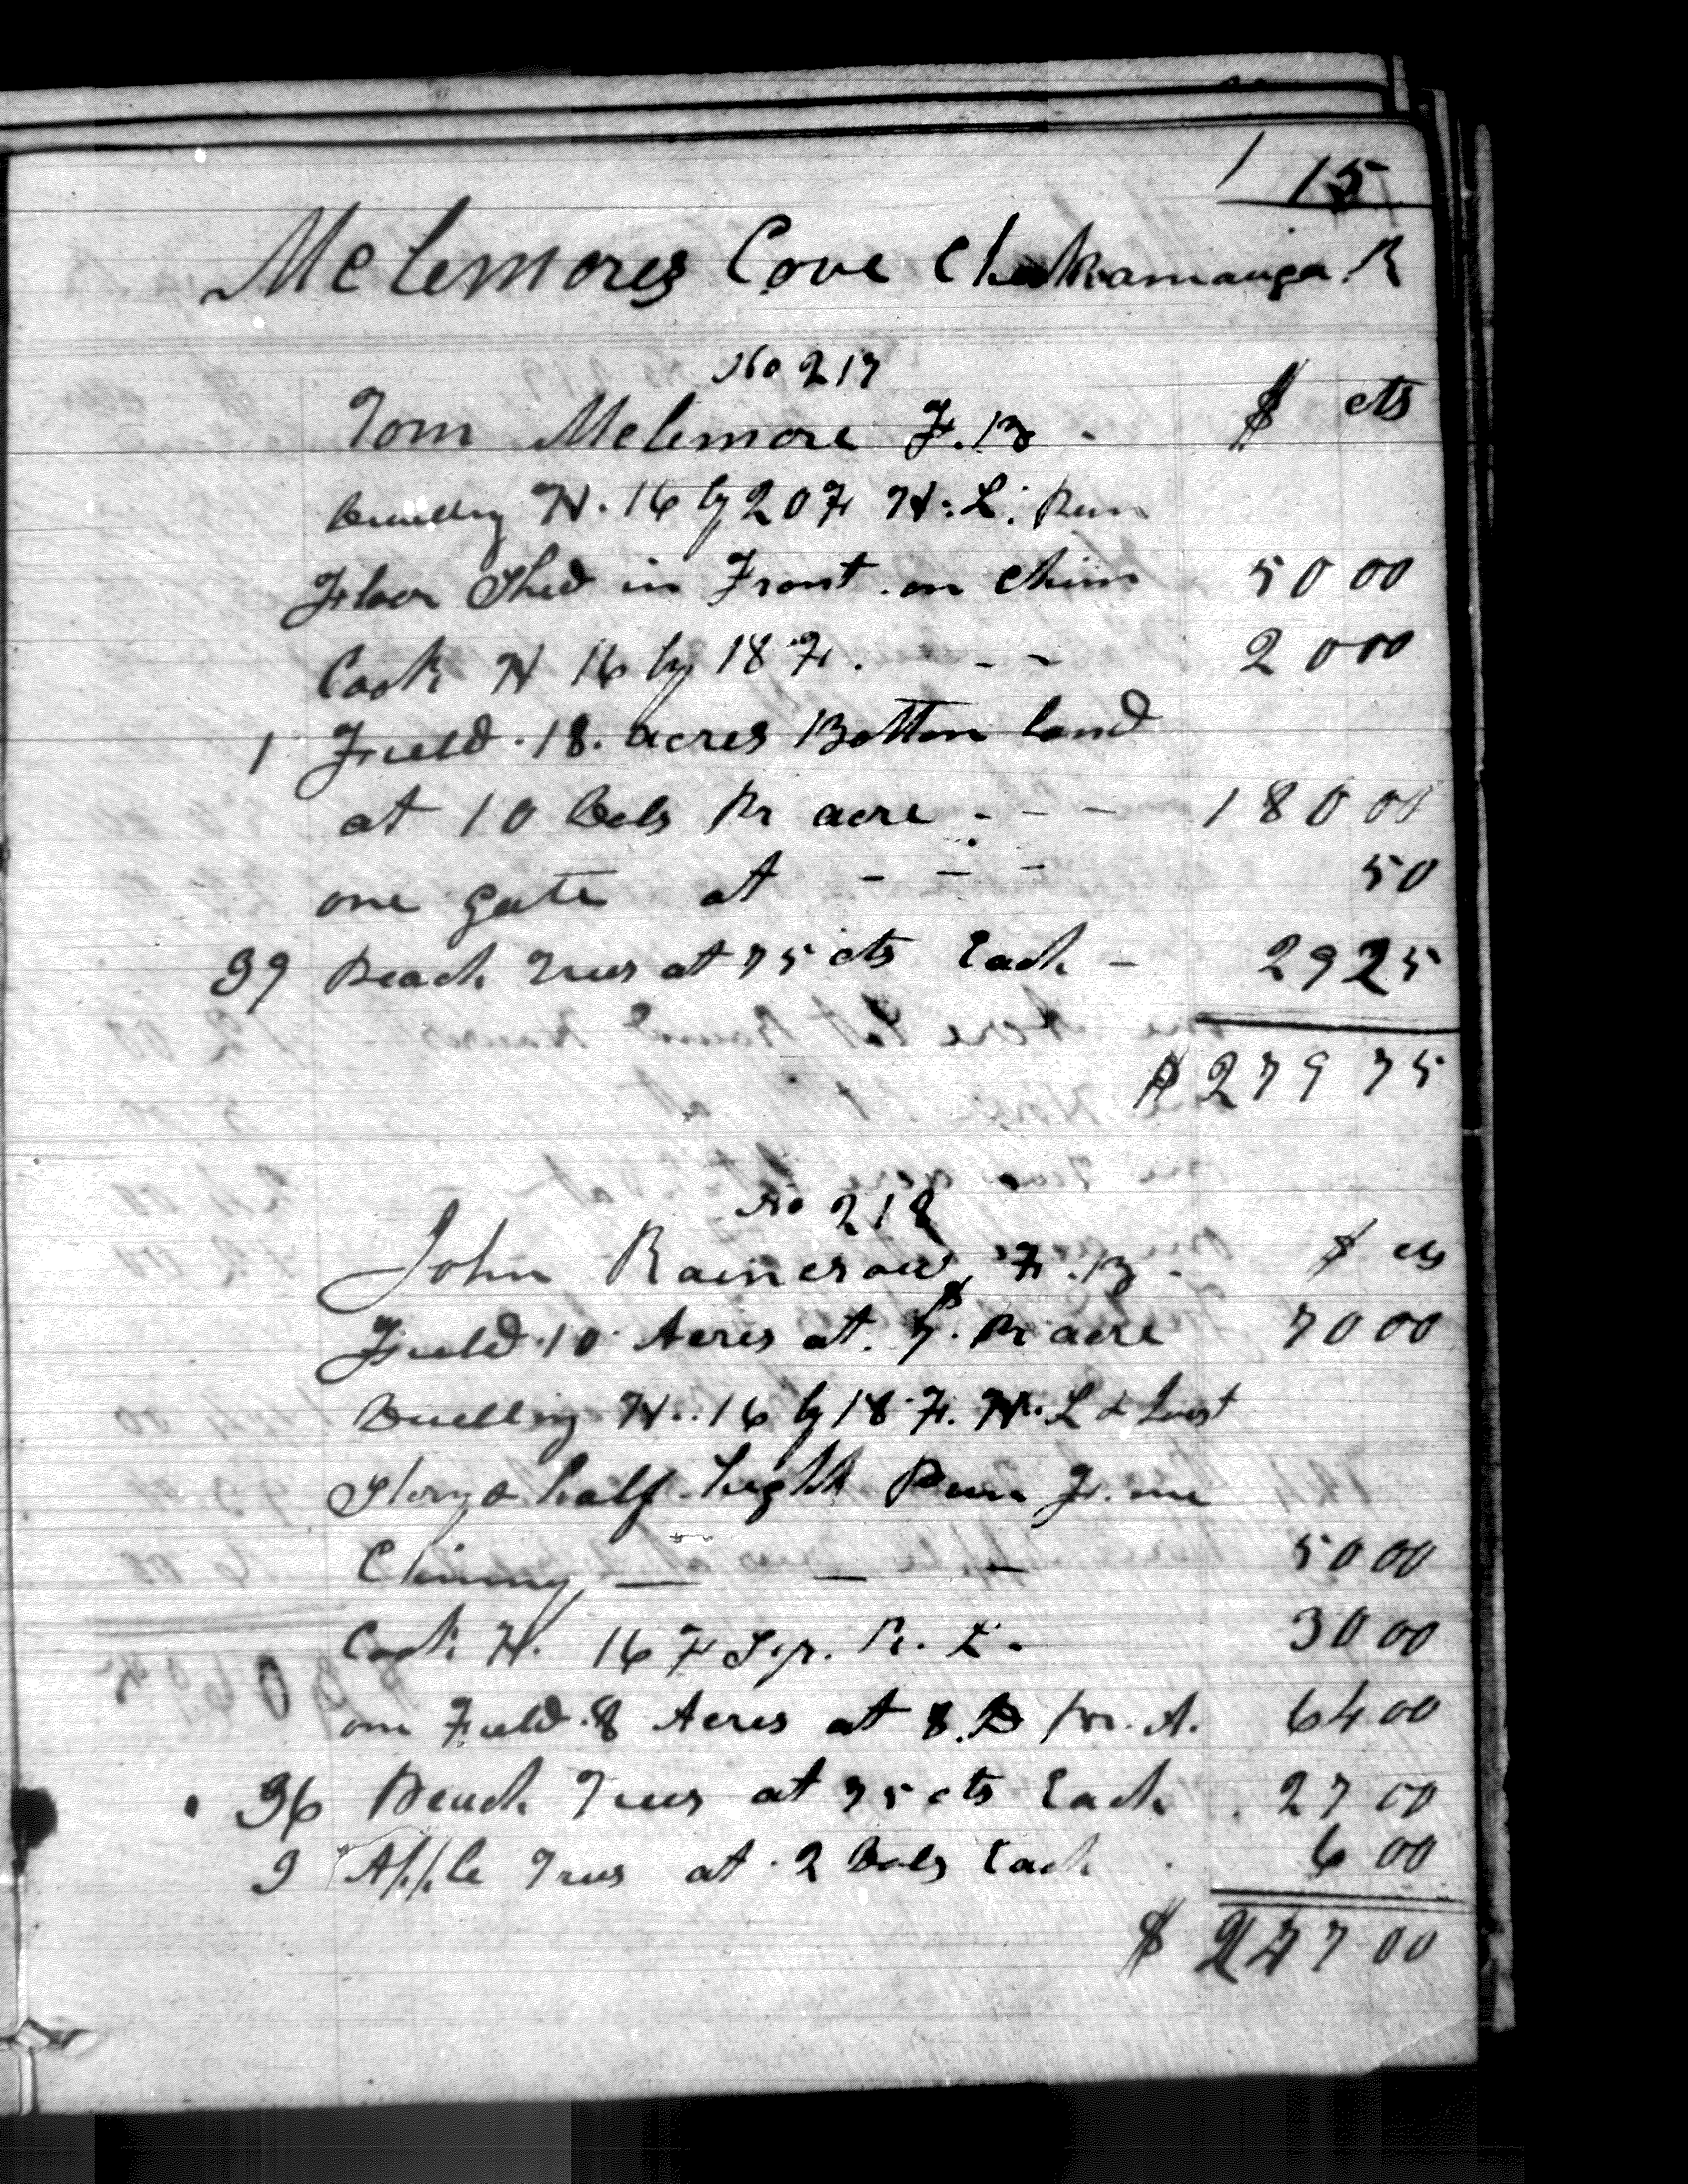 1 15
McLemores Cove Chickamauga R
No 217
Tom McLemore F. B - $ cts
Dwelling H. 16 by 20 F H: L. Pun
Floor Shed in Front. on Chim 50 00
Cook H 16 by 18 F. - - 20 00
1 Field. 18. acres Bottom land
at 10 Dols Pr acre - - - 180 00
one gate at - - - 50
39 Peach Trees at 75 cts Each - 29 25
$ 279 75
No 218
John Raincrow, F. B. - $ cts
Field 10 Acres at. $7. Pr acre 70 00
Dwelling H. 16 by 18 F. H. L &
Story & half hight Pun F. one
Chimny — — — 50 00
Cook H. 16 F Sqr. R. L - 30 00
one Field. 8 Acres at 8. D pr. A. 64 00
36 Peach Trees at 75 cts Each . 27 00
3 Apple Trees at . 2 Dols Each . 6 00
$ 247 00